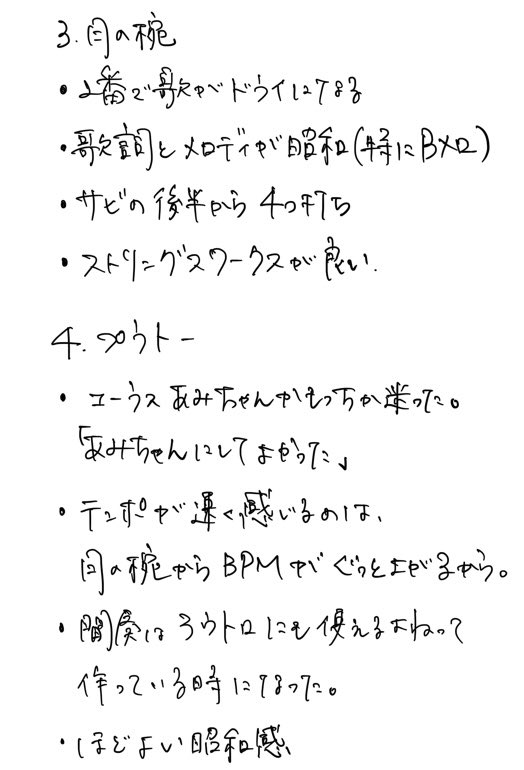 3. 月の椀
・2番で歌がドライになる
・歌詞とメロディが昭和(特にBメロ)
・サビの後半から4つ打ち
・ストリングスワークスが良い.
4. プルトー
・コーラスあみちゃんかもっちか迷った。
「あみちゃんにしてよかった」
・テンポが速く感じるのは、
月の椀からBPMがぐっと上がるから。
・間奏はアウトロにも使えるよねって
作っている時になった。
・ほどよい昭和感